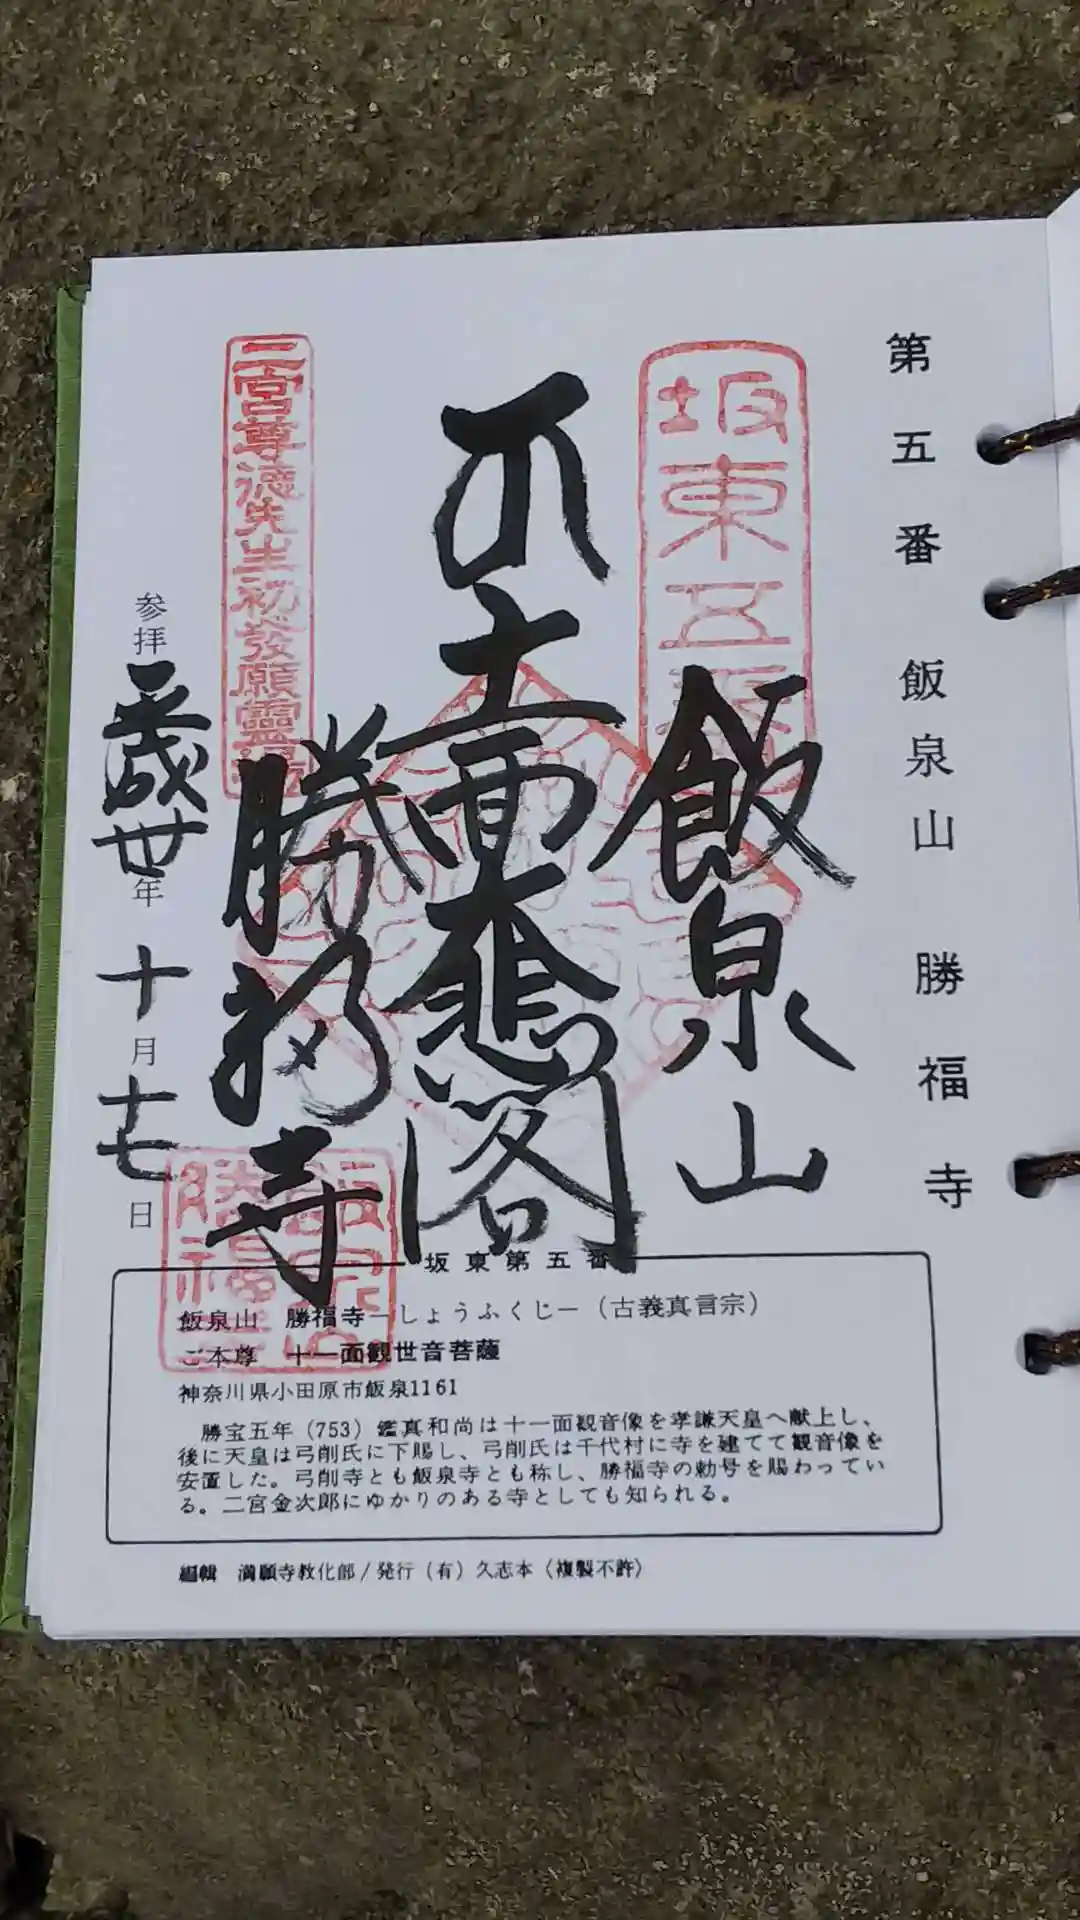 第五番 飯泉山 勝福寺
坂東五番
飯泉山
十一面大悲閣
勝福寺
二宮尊徳先生初發願靈場
参拝 平成廿年 十月十七日
坂東第五番
飯泉山 勝福寺―しょうふくじ―(古義真言宗)
ご本尊 十一面観世音菩薩
神奈川県小田原市飯泉1161
勝宝五年(753)鑑真和尚は十一面観音像を孝謙天皇へ献上し、
後に天皇は弓削氏に下賜し、弓削氏は千代村に寺を建てて観音像を
安置した。弓削寺とも飯泉寺とも称し、勝福寺の勅号を賜わってい
る。二宮金次郎にゆかりのある寺としても知られる。
編輯 満願寺教化部/発行(有)久志本(複製不許)